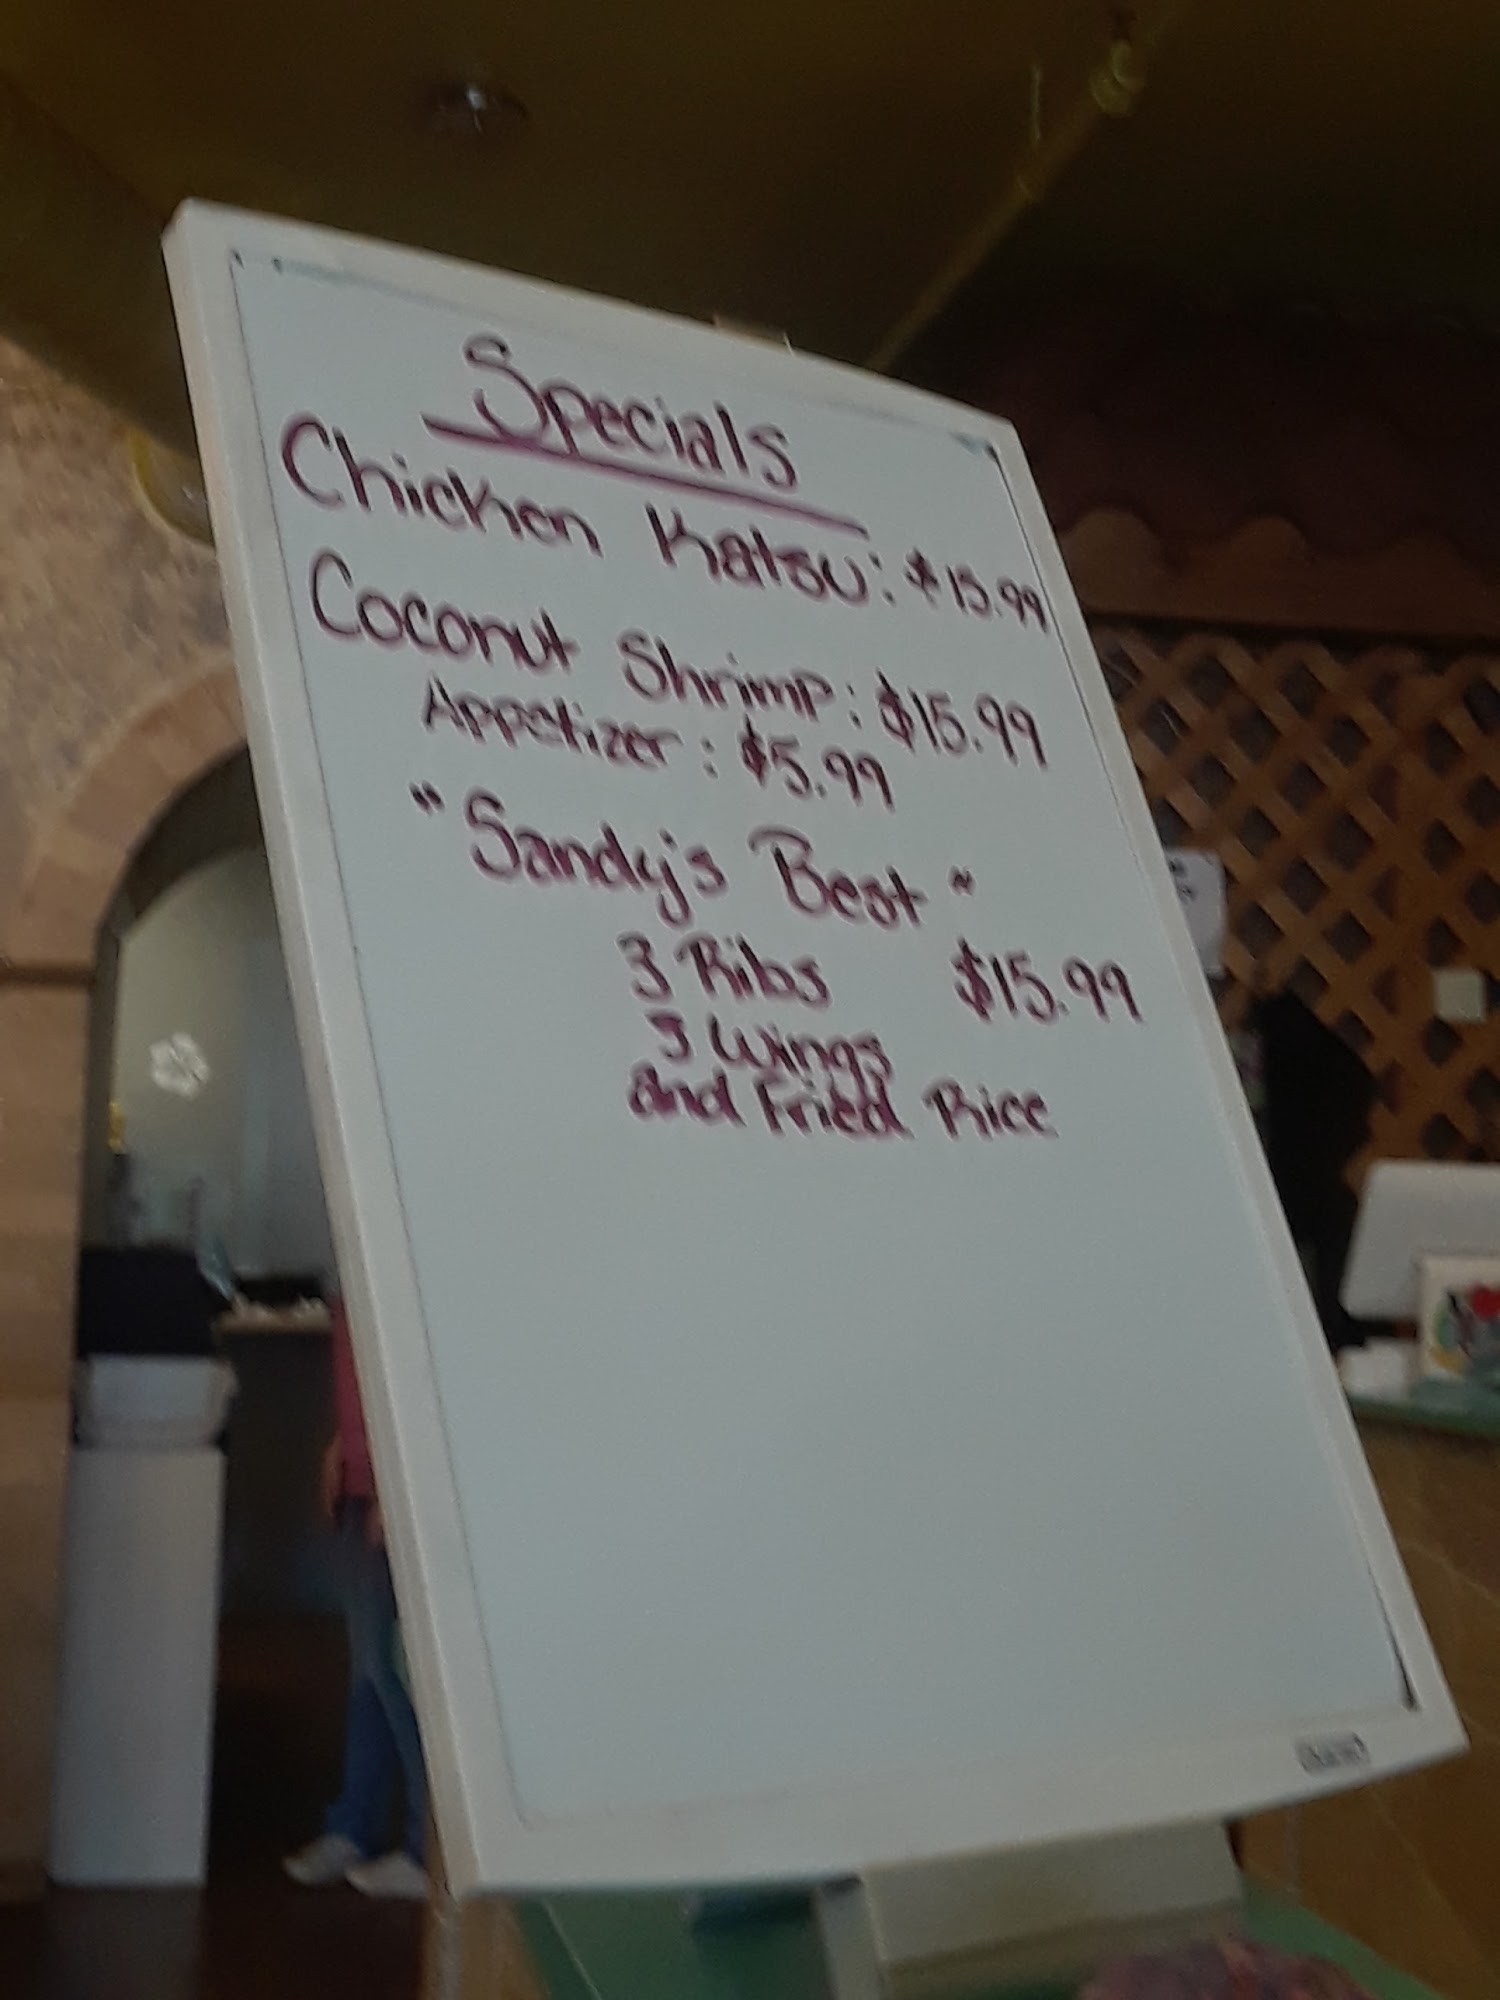 Specials
Chicken Katsu: $15.99
Coconut Shrimp: $15.99
Appetizer: $5.99
"Sandy's Best"
3 Ribs $15.99
3 Wings
and Fried Rice